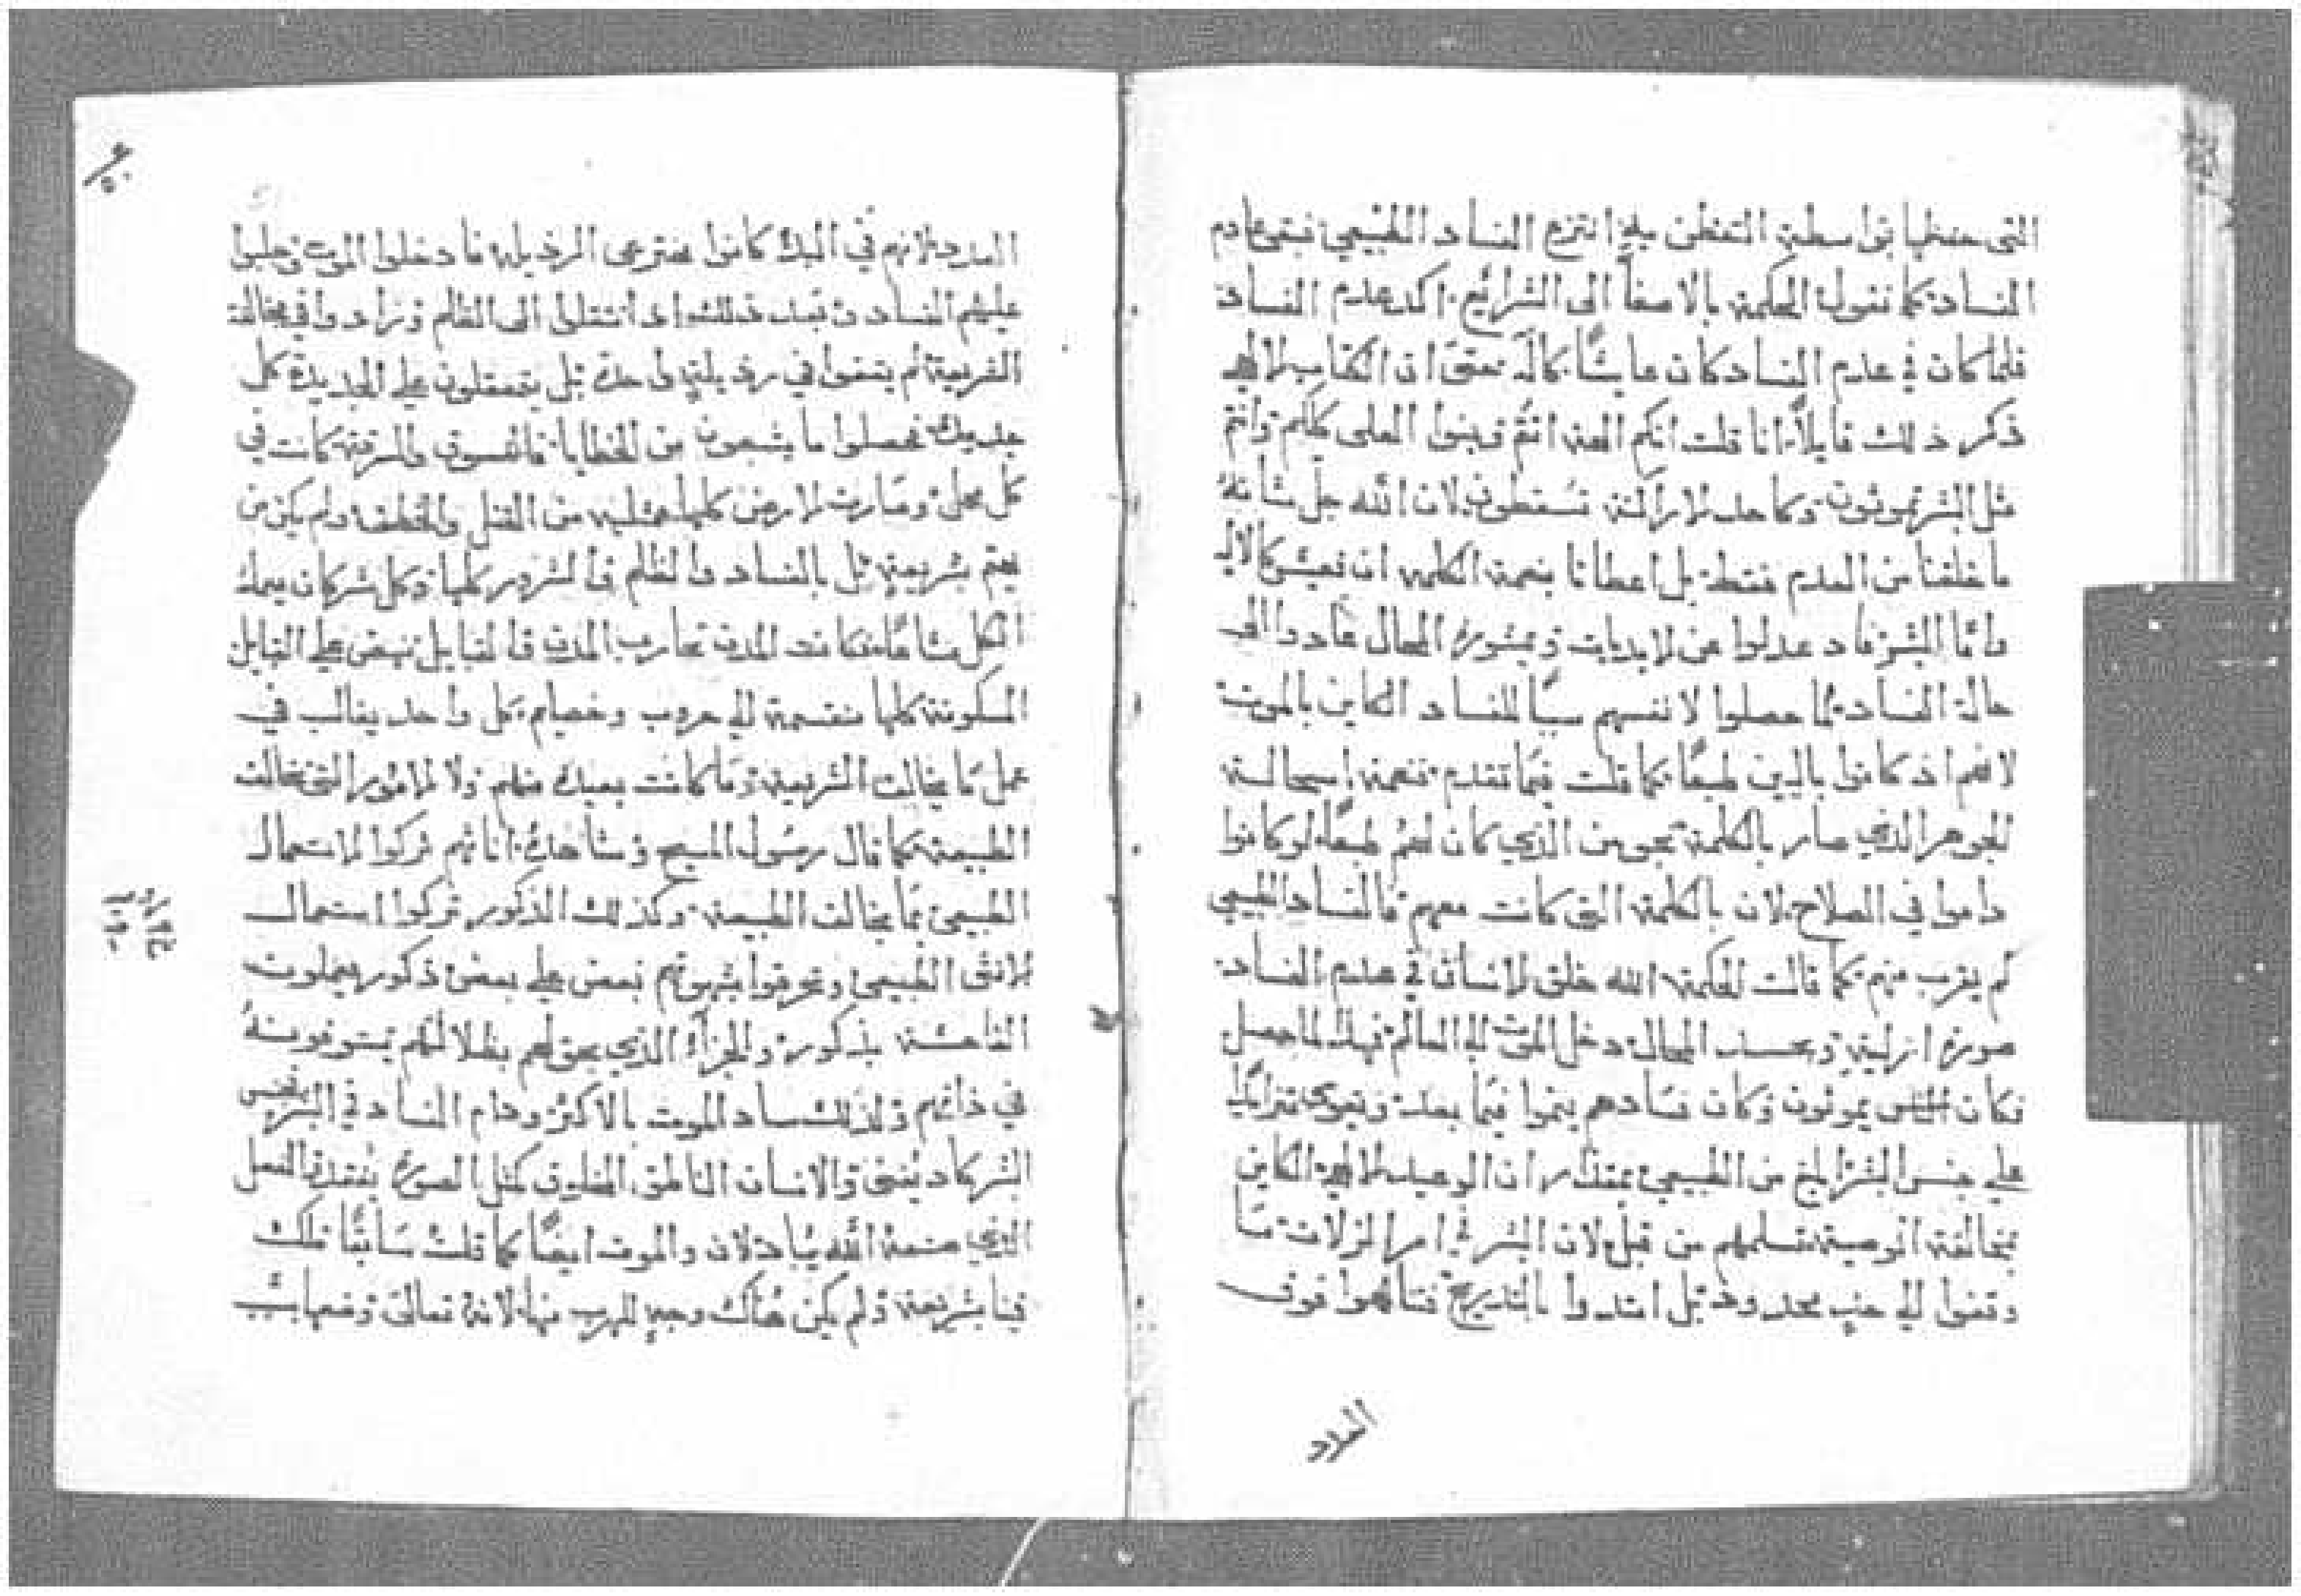 التى حفظها بواسطة التفطن بها انتزع الفساد الطبيعي فبقى عادم
الفساد كما تقول الحكمة بالاصغآ الى الشرائع اكد عدم الفساد
فلما كان في عدم الفساد كان عايشًا كالَه حتى ان الكتاب الالهي
ذكر ذلك قايلاً انا قلت انكم الهه انتم وبنوا العلى كلكم وانتم
مثل البشر تموتون وكاحد الاراكنة تسقطون لان الله جل شانهُ
ما خلقنا من العدم فقط بل اعطانا بنعمة الكلمه ان نعيش كالاله
واما البشر فاد عدلوا عن الابديات وبمشورة المحال عادوا الى
حالة الفساد مما حصلوا لانفسهم سببًا للفساد الكاين بالموت
لانهم اذ كانوا باليين طبعًا كما قلت فيما تقدم فنعمة
الجوهر الذي صار بالكلمة نجوهن الذي كان لهم طبعًا لو كانوا
داموا في الصلاح لان بالكلمة التي كانت معهم فالفساد الطبيعي
لم يقرب منهم كما قالت الحكمة الله خلق الانسان في عدم الفساد
صورة ازلية وبحسد المحال دخل الموت الى العالم فهذا لما حصل
فكان الناس يموتون وكان فسادهم ينموا فيما بعد ويقوى متزايدًا
على جنس البشر ابلغ من الطبيعي بمقدار ان الوعيد الالهي الكاين
بمخالفة الوصية تسلمهم من قبل لان البشر في امر الزلات ما
وقفوا الى حدٍ محدود بل امتدوا بالتدريج فتناهوا فوق
العدد
العدد لانهم في البدء كانوا مخترعى الرذيله فادخلوا الموت وجلبوا
عليهم الفساد وبعد ذلك واذ انتقلوا الى الظلم وزادوا في مخالفة
الشريعة لم يقفوا في رذيلةٍ واحدة بل يتعقلون على الجديدة كل
جديدة فحصلوا ما يشبعون من الخطايا فالفسوق والسرقة كانت في
كل محل وصارت الارض كلها ممتليه من القتل والخطف ولم يكن من
يهتم بشريعةٍ بل بالفساد والظلم والشرور كلها وكل شر كان يعمله
الكل مشاعًا فكانت المدن تحارب المدن والقبايل تنهض على القبايل
المسكونة كلها منقسمة الى حروب وخصام وكل واحد يغالب في
عمل ما يخالف الشريعة وما كانت بعيدة منهم ولا الامور التي تخالف
الطبيعة كما قال رسول المسيح وشاهدهُ اناثهم تركوا الاستعمال
الطبيعي بما يخالف الطبيعة وكذلك الذكور تركوا استعمال
الانثى الطبيعي وتحرقوا بشهوتهم بعض على بعض ذكور يعملون
الفاحشة بذكور والجزآء الذي يحق لهم بظلالتهم يستوفونهُ
في ذاتهم ولذلك ساد الموت بالاكثر ودام الفساد في البشر بجنس
البشر كاد يفنى والانسان الناطق المخلوق كمثل الصورة يفقد والفعل
الذي صنعهُ الله يباد لان والموت ايضًا كما قلت سابقًا ملك
فينا بشريعة ولم يكن هناك وجهٍ للهرب منها لانهُ تعالى وضعها بسبب